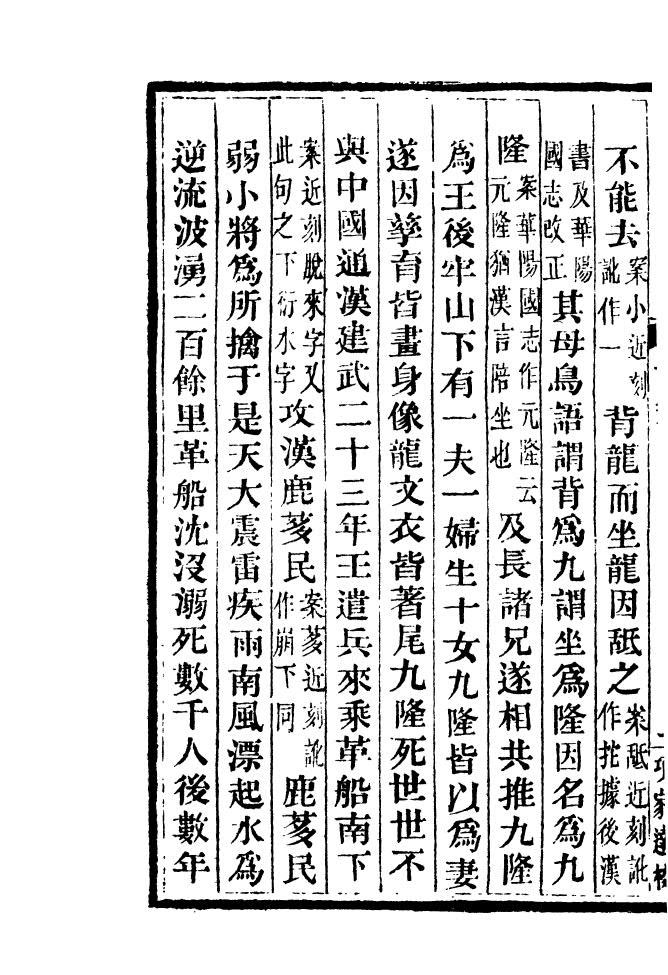 不能去案小近刻訛作一背龍而坐龍因舐之案舐近刻訛作挓據後漢
書及華陽國志改正其母鳥語謂背爲九謂坐爲隆因名爲九
隆案華陽國志作元隆云元隆猶漢言陪坐也及長諸兄遂相共推九隆
爲王後牢山下有一夫一婦生十女九隆皆以爲妻
遂因孳育皆畫身像龍文衣皆著尾九隆死世世不
與中國通漢建武二十三年王遣兵來乘革船南下
案近刻脫來字又此句之下衍水字攻漢鹿茤民案茤近刻訛作崩下同鹿茤民
弱小將爲所擒于是天大震雷疾雨南風漂起水爲
逆流波湧二百餘里革船沈沒溺死數千人後數年